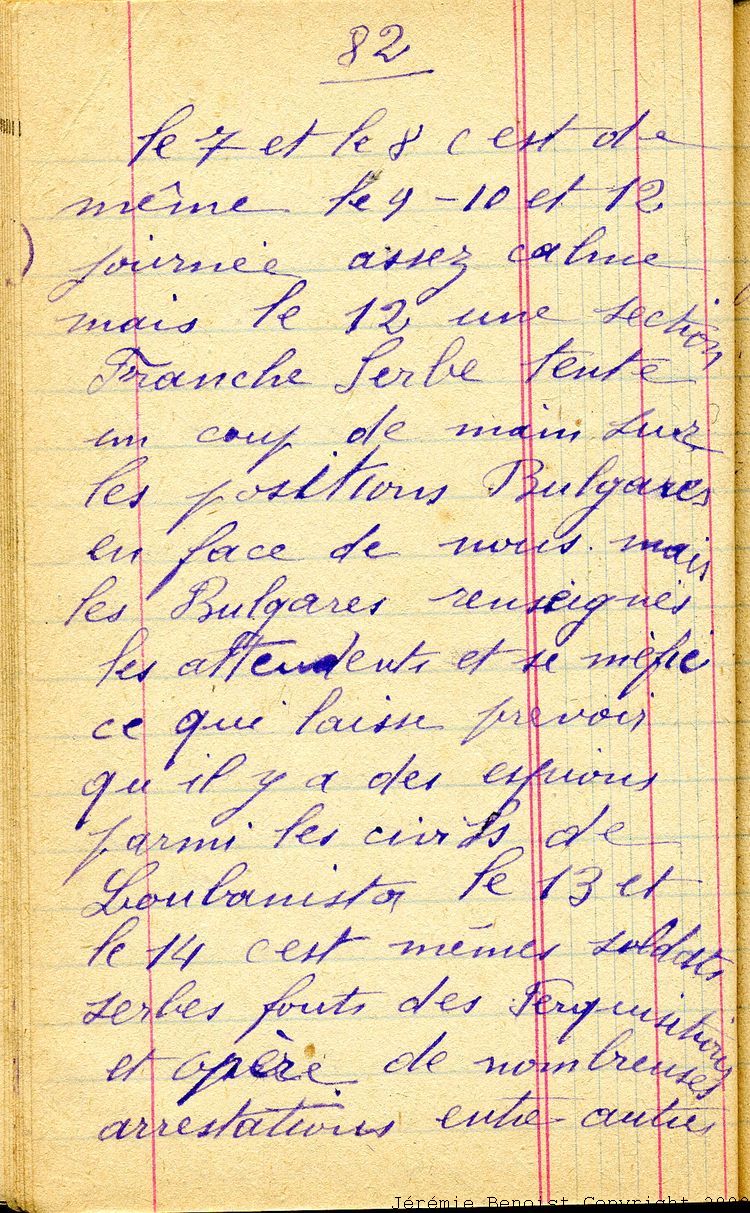 82
le 7 et le 8 c est de
même le 9 - 10 et 12
journée assez calme
mais le 12 une section
Franche Serbe tente
un coup de main sur
les positions Bulgares
en face de nous. mais
les Bulgares renseignés
les attendents et se méfie
ce qui laisse prevoir
qu il y a des espions
parmi les civils de
Loubanista le 13 et
le 14 c est mêmes soldats
serbes fonts des Perquisitions
et opère de nombreuses
arrestations entre autres
Jérémie Benoist Copyright